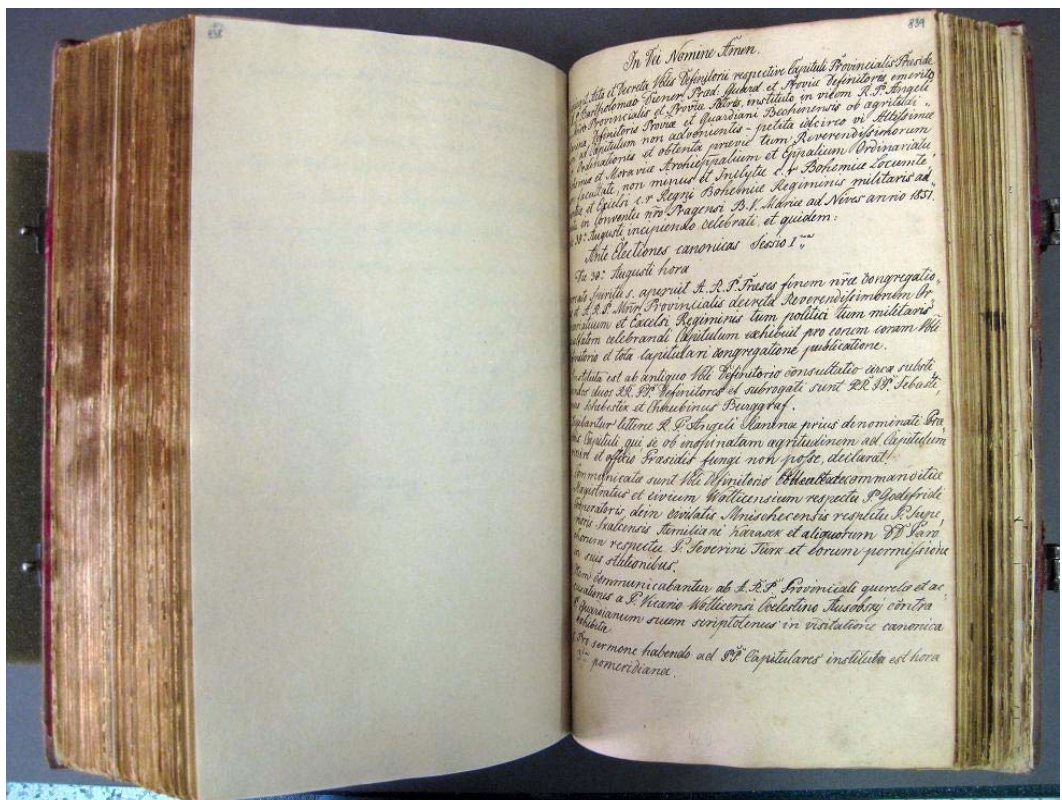 838
839
In Dei Nomine Amen.
Acta et Decreta Vblis Definitorii respective Capituli Provincialis Praeside
Bartholomaeo Diener, Praed. Guard. et Proviae Definitore emerito
Provincialis et Proviae Patre, instituto in vicem R. P. Angeli
Definitoris Proviae et Guardiani Bechinensis ob aegritudi„
ad Capitulum non advenientis – petita idcirco vi Altissimae
Ordinationis et obtenta praevie tum Reverendissimorum
et Moraviae Archieppalium et Eppalium Ordinariatu
facultate, non minus et Inclytae c. r. Bohemiae Locumte„
et Excelsi c. r Regni Bohemiae Regiminis militaris ad„
in Conventu nro Pragensi B. V. Mariae ad Nives anno 1851.
30ª Augusti incipiendo celebrati, et quidem:
Ante Electiones canonicas Sessio I
Die 30ª Augusti hora
Spiritu s. aperuit A. R. P. Praeses finem nrae Congregatio„
et A. R. P. Mnr Provincialis decreta Reverendissimorum Or„
et Excelsi Regiminis tum politici tum militaris
celebrandi Capitulum exhibuit pro eorum coram Vbli
et tota Capitulari Congregatione publicatione.
Instituta est ab antiquo Vbli Definitorio consultatio circa substi„
duos RR. PP. Definitores et subrogati sunt RR. PP. Sebasti„
Schebestik et Cherubinus Burggraf.
litterae R. P. Angeli Hanina prius denominati Prae„
Capituli, qui se ob inopinatam aegritudinem ad Capitulum
et officio Praesidis fungi non posse, declarat.
Communicata sunt Vbli Definitorio commanditiae
Magistratus et civium Wotticensium respectu P. Godefridi
Cooperatoris dein civitatis Mnischecensis respectu P. Supe„
rioris Skalcensis Aemiliani Karasek et aliquorum DD Paro
chorum respectu P. Severini Türk et eorum permissione
in suis stationibus.
Item Communicabantur ab A. R. P. Provinciali querelae et ac„
cusationes a P. Vicario Wotticensi Coelestino contra
P. Guardianum suum scriptotenus in visitatione canonica
exhibita.
Pro sermone habendo ad PP. Capitulares instituta est hora
pomeridiana.